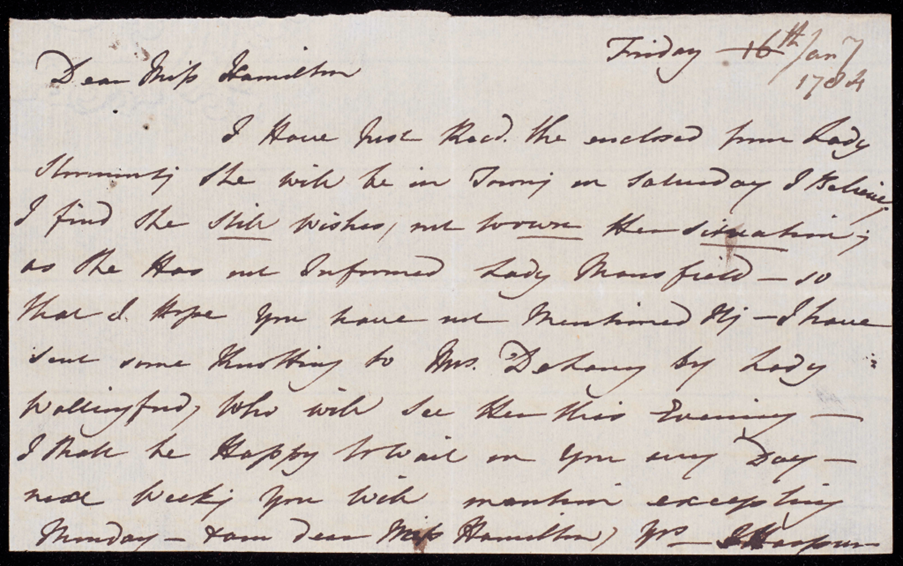 Friday 16th Jany
1784
Dear Miss Hamilton
I Have Just Recd. the enclosed from Lady
Stormont, She will be in Town, on Saturday I Believe,
I find She still wishes, not to own Her situation,
as She Has not Informed Lady Mansfield — so
that I Hope you have not Mentioned It, — I have
sent some Knotting to Mrs. Delany by Lady
Wallingford, Who will See Her this Evening —
I Shall be Happy to Wait on You any Day —
next Week, You Will mention excepting
Monday — & am dear Miss Hamilton, Yrs —